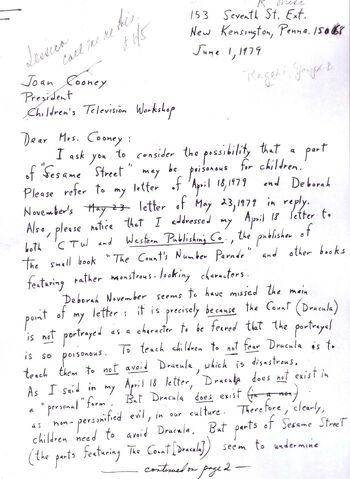 153 Seventh St. Ext.
New Kensington, Penna. 15068
June 1, 1979
Jessica
call me re this.
8/5
Joan Cooney
President
Children's Television Workshop
Dear Mrs. Cooney :
I ask you to consider the possibility that a part
of "Sesame Street" may be poisonous for children.
Please refer to my letter of April 18, 1979 and Deborah
November's May 23 letter of May 23, 1979 in reply.
Also, please notice that I addressed my April 18 letter to
both CTW and Western Publishing Co., the publisher of
the small book "The Count's Number Parade" and other books
featuring rather monstrous-looking characters.
Deborah November seems to have missed the main
point of my letter : it is precisely because the Count (Dracula)
is not portrayed as a character to be feared that the portrayal
is so poisonous. To teach children to not fear Dracula is to
teach them to not avoid Dracula, which is disastrous.
As I said in my April 18 letter, Dracula does not exist in
a "personal" form. But Dracula does exist (in a non)
as non-personified evil, in our culture. Therefore, clearly,
children need to avoid Dracula. But parts of Sesame Street
(the parts featuring The Count [Dracula]) seem to undermine
— continued on page 2 —